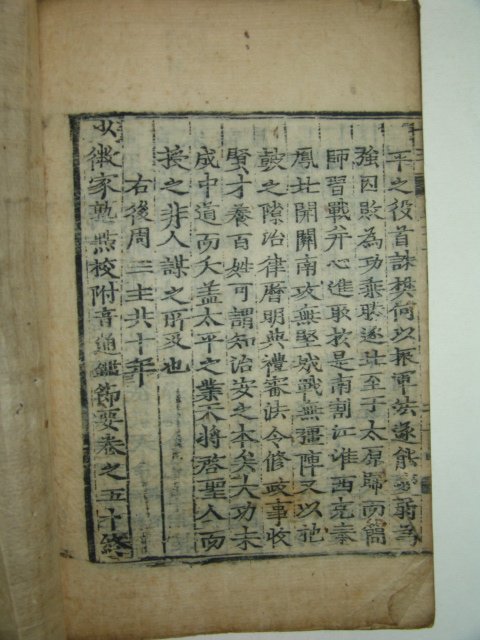 平之役首誅樊何以振軍法遂能以弱為
強因敗為功乘勝逐北至于太原歸而簡
師習戰并心進取於是南割江淮西克秦
鳳北開關南攻無堅城戰無彊陣又以訖
皷之隙治律曆明典禮審法令修政事收
賢才養百姓可謂知治安之本矣大功未
成中道而夭盖太平之業天將啓聖人而
授之非人謀之所及也
右後周三主共十年
少微家塾點校附音通鑑節要卷之五十終